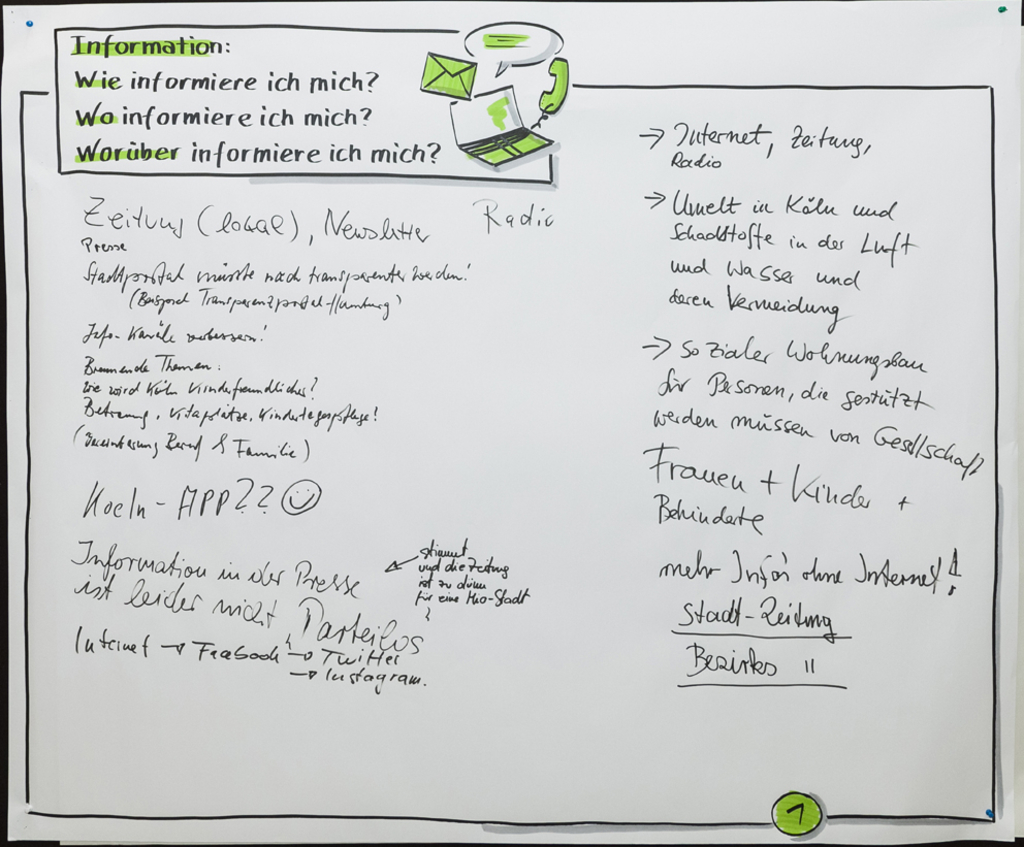 Information:
Wie informiere ich mich?
Wo informiere ich mich?
Worüber informiere ich mich?
Zeitung (lokal), Newsletter Radio
Presse
Stadtportal müsste noch transparenter werden!
(Beispiel Transparenzportal-Hamburg)
Info-Kanäle verbessern!
Brennende Themen:
Wie wird Köln kinderfreundlicher?
Betreuung, Kitaplätze, Kindertagespflege!
(Vereinbarung Beruf & Familie)
Koeln-APP??
Information in der Presse
ist leider nicht Parteilos
stimmt
und die Zeitung
ist zu dünn
für eine Mio-Stadt
Internet → Facebook → Twitter
→ Instagram.
→ Internet, Zeitung,
Radio
→ Umwelt in Köln und
Schadstoffe in der Luft
und Wasser und
deren Vermeidung
→ Sozialer Wohnungsbau
für Personen, die gestützt
werden müssen von Gesellschaft
Frauen + Kinder +
Behinderte
mehr Info's ohne Internet!
Stadt-Zeitung
Bezirks "
1